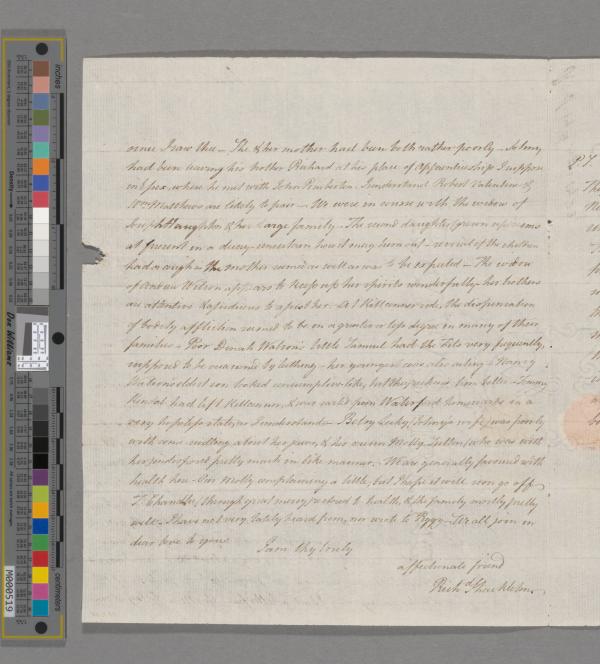 since I saw thee — She & her mother had been both rather poorly — Johnny
had been leaving his brother Richard at his place of Apprenticeship I suppose
in Essex, where he met with John Pemberton. I understand Robert Valentine &
Wm. Matthews are likely to pair — We were in course with the widow of
Joseph Haughton & her large family — The second daughter (grown up) seems
at present in a decay — uncertain how it may turn out — several of the children
had a cough — the mother seemed as well as was to be expected — The widow
of Andrew Wilson appears to keep up her spirits wonderfully — her brothers
are attentive & assiduous to assist her. At Kilconner side, the dispensation
of bodily affliction seemed to be on a greater or less degree in many of their
families — Poor Dinah Watson's little Samuel had the Fits very frequently,
supposed to be occasioned by teething — her youngest was also ailing —
Watson's eldest son looked consumptive-like, but they reckoned him better —
had left Kilconner, & was carried from Waterford homewards in a
very hopeless state, as I understand — Betsy Lecky, (Johnny's wife) was poorly
with some swelling about her jaws, & her cousin Molly who was with
her indifferent pretty much in like manner. We are generally favoured with
health here — Our Molly complaining a little, but I hope it will soon go off —
T. Chandlee, (through great mercy) restored to health, & the family mostly pretty
well — I have not very lately heard from, nor wrote to Peggy — We all join in
dear love to you
I am thy lovely
affectionate friend
Richd Shackleton.
P.S.